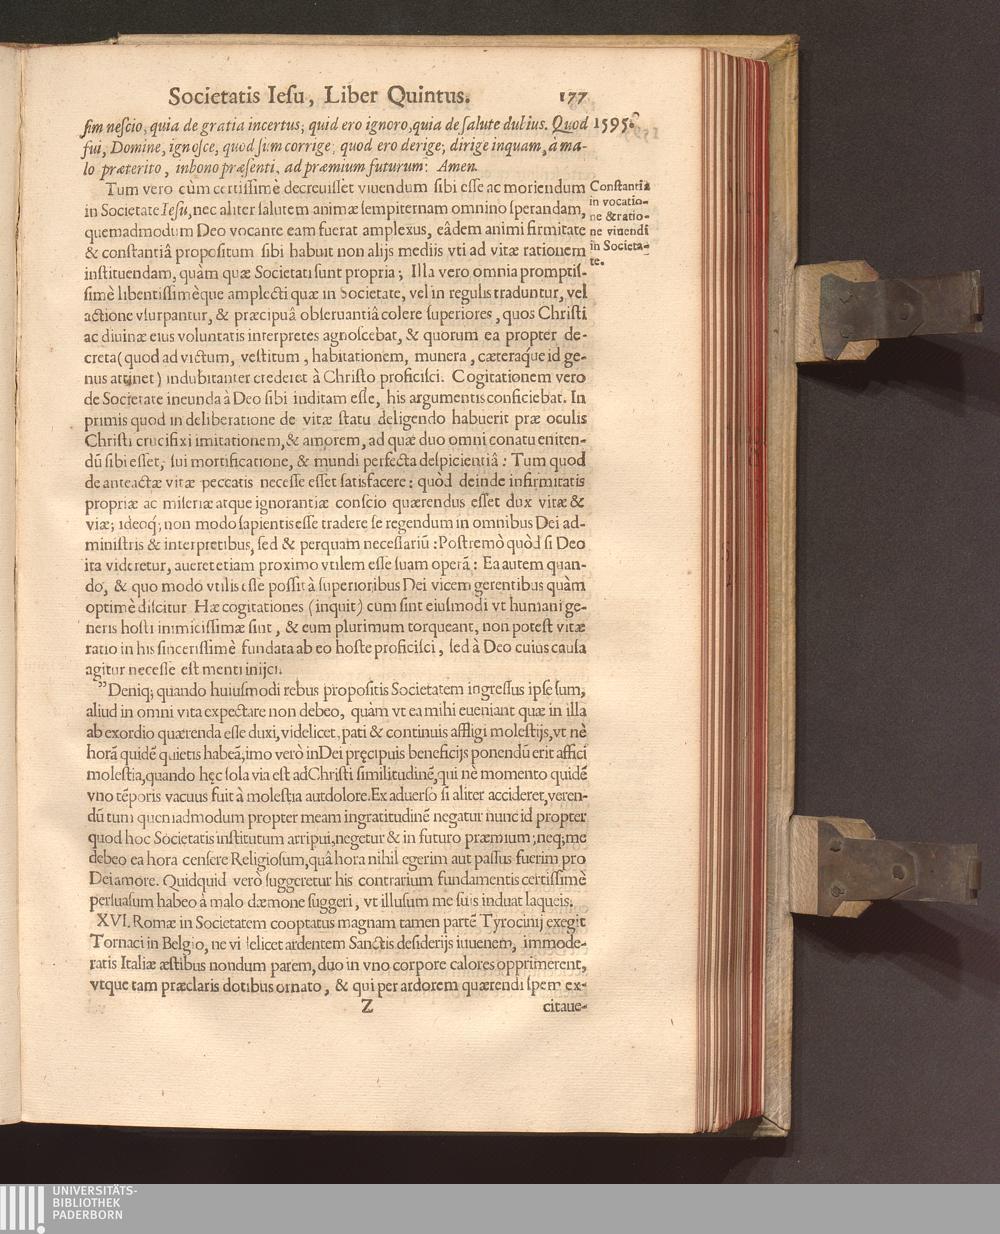 Societatis Iesu, Liber Quintus. 177
sim nescio, quia de gratia incertus; quid ero ignoro, quia de salute dubius. Quod 1595.
fui, Domine, ignosce, quod sum corrige, quod ero derige; dirige inquam, à ma-
lo præterito, in bono præsenti, ad præmium futurum. Amen.
Tum vero cùm certissimè decreuisset viuendum sibi esse ac moriendum
in Societate Iesu, nec aliter salutem animæ sempiternam omnino sperandam,
quemadmodum Deo vocante eam fuerat amplexus, eâdem animi firmitate
& constantiâ propositum sibi habuit non alijs mediis vti ad vitæ rationem
instituendam, quàm quæ Societati sunt propria; Illa vero omnia promptis-
simè libentissimèque amplecti quæ in Societate, vel in regulis traduntur, vel
actione vsurpantur, & præcipuâ obseruantiâ colere superiores, quos Christi
ac diuinæ eius voluntatis interpretes agnoscebat, & quorum ea propter de-
creta (quod ad victum, vestitum, habitationem, munera, cæteraque id ge-
nus attinet) indubitanter crederet à Christo proficisci. Cogitationem vero
de Societate ineunda à Deo sibi inditam esse, his argumentis conficiebat. In
primis quod in deliberatione de vitæ statu deligendo habuerit præ oculis
Christi crucifixi imitationem, & amorem, ad quæ duo omni conatu eniten-
dū sibi esset, sui mortificatione, & mundi perfecta despicientiâ: Tum quod
de anteactæ vitæ peccatis necesse esset satisfacere: quòd deinde infirmitatis
propriæ ac miseriæ atque ignorantiæ conscio quærendus esset dux vitæ &
viæ; ideoq; non modo sapientis esse tradere se regendum in omnibus Dei ad-
ministris & interpretibus, sed & perquam necessariū: Postremò quòd si Deo
ita videretur, aueret etiam proximo vtilem esse suam operā: Ea autem quan-
do, & quo modo vtilis esse possit à superioribus Dei vicem gerentibus quàm
optimè discitur Hæ cogitationes (inquit) cum sint eiusmodi vt humani ge-
neris hosti inimicissimæ sint, & eum plurimum torqueant, non potest vitæ
ratio in his sincerissimè fundata ab eo hoste proficisci, sed à Deo cuius causa
agitur necesse est menti inijci.
„Deniq; quando huiusmodi rebus propositis Societatem ingressus ipse sum,
aliud in omni vita expectare non debeo, quàm vt ea mihi eueniant quæ in illa
ab exordio quærenda esse duxi, videlicet, pati & continuis affligi molestijs, vt nè
horā quidē quietis habeā, imo verò in Dei pręcipuis beneficijs ponendū erit affici
molestia, quando hęc sola via est ad Christi similitudinē, qui nè momento quidē
vno tēporis vacuus fuit à molestia aut dolore. Ex aduerso si aliter accideret, veren-
dū tum quemadmodum propter meam ingratitudinē negatur nunc id propter
quod hoc Societatis institutum arripui, negetur & in futuro præmium; neq; me
debeo ea hora censere Religiosum, quâ hora nihil egerim aut passus fuerim pro
Dei amore. Quidquid verò suggeretur his contrarium fundamentis certissimè
persuasum habeo à malo dæmone suggeri, vt illusum me suis induat laqueis.
XVI. Romæ in Societatem cooptatus magnam tamen partē Tyrocinij exegit
Tornaci in Belgio, ne videlicet ardentem Sanctis desiderijs iuuenem, immode-
ratis Italiæ æstibus nondum parem, duo in vno corpore calores opprimerent,
vtque tam præclaris dotibus ornato, & qui per ardorem quærendi spem ex-
Z citaue-
Constantia
in vocatio-
ne & ratio-
ne viuendi
in Societa-
te.
UNIVERSITÄTS-
BIBLIOTHEK
PADERBORN